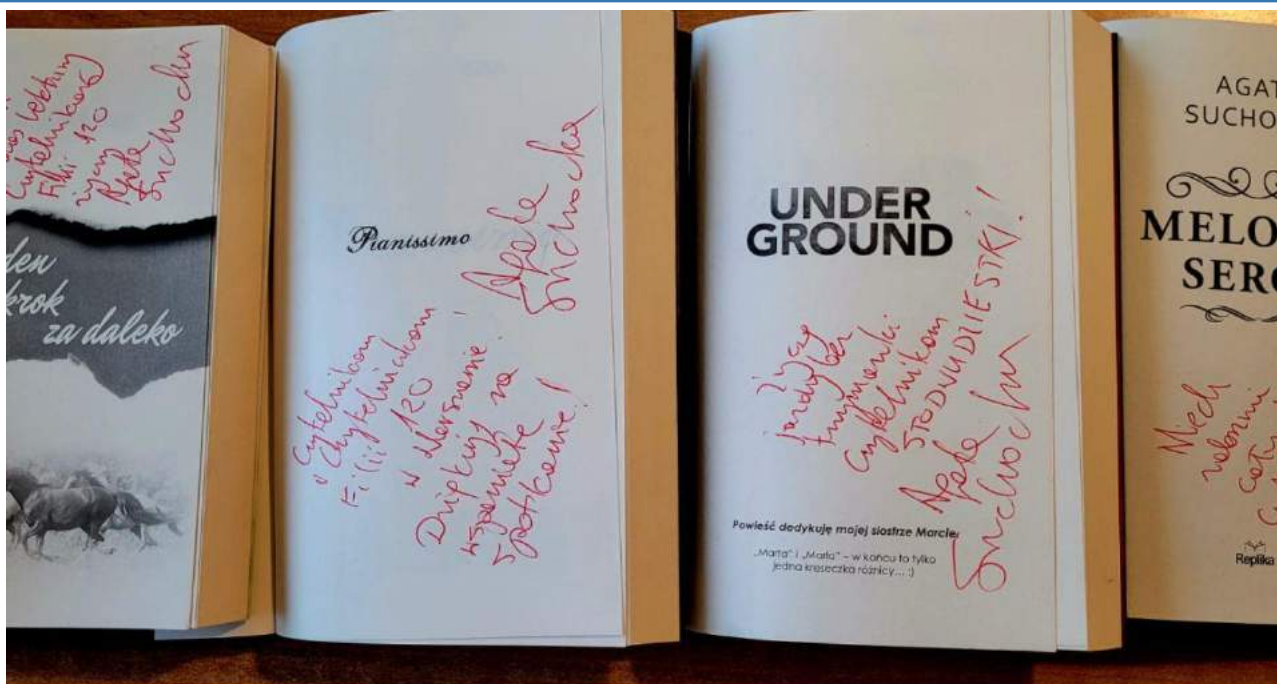 Czytelnikom
Filii 120
życzy
Agata
Suchocka
den
krok
za daleko
Pianissimo
Czytelnikom
i Czytelniczkom
Filii 120
w Warszawie!
Dziękuję za
wspaniałe
spotkanie!
Agata
Suchocka
UNDER
GROUND
Życzę
jazdy bez
trzymanki
Czytelnikom
STODWUDZIESTKI!
Agata
Suchocka
Powieść dedykuję mojej siostrze Marcie,
„Marta” i „Marla” – w końcu to tylko
jedna kreseczka różnicy... :)
AGAT
SUCHO
MELO
SERC
Niech
Replika